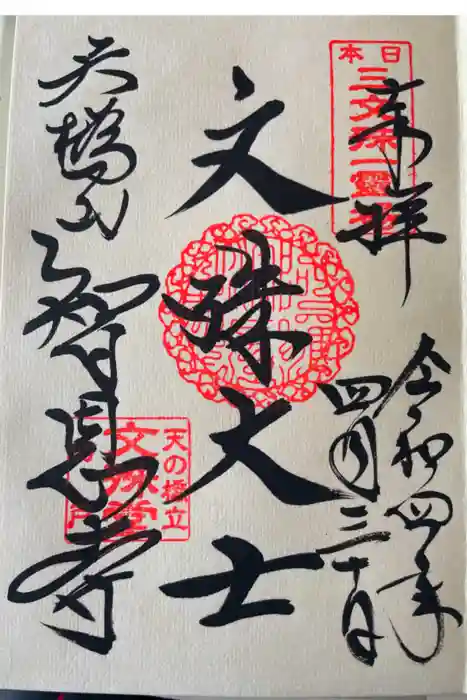 奉拝
日本
三文殊一霊場
令和四年
四月三十日
文殊大士
天橋山
智恩寺
天の橋立
文殊堂